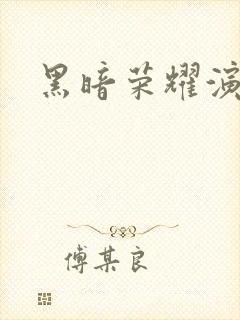 黑暗荣耀演
傅某良